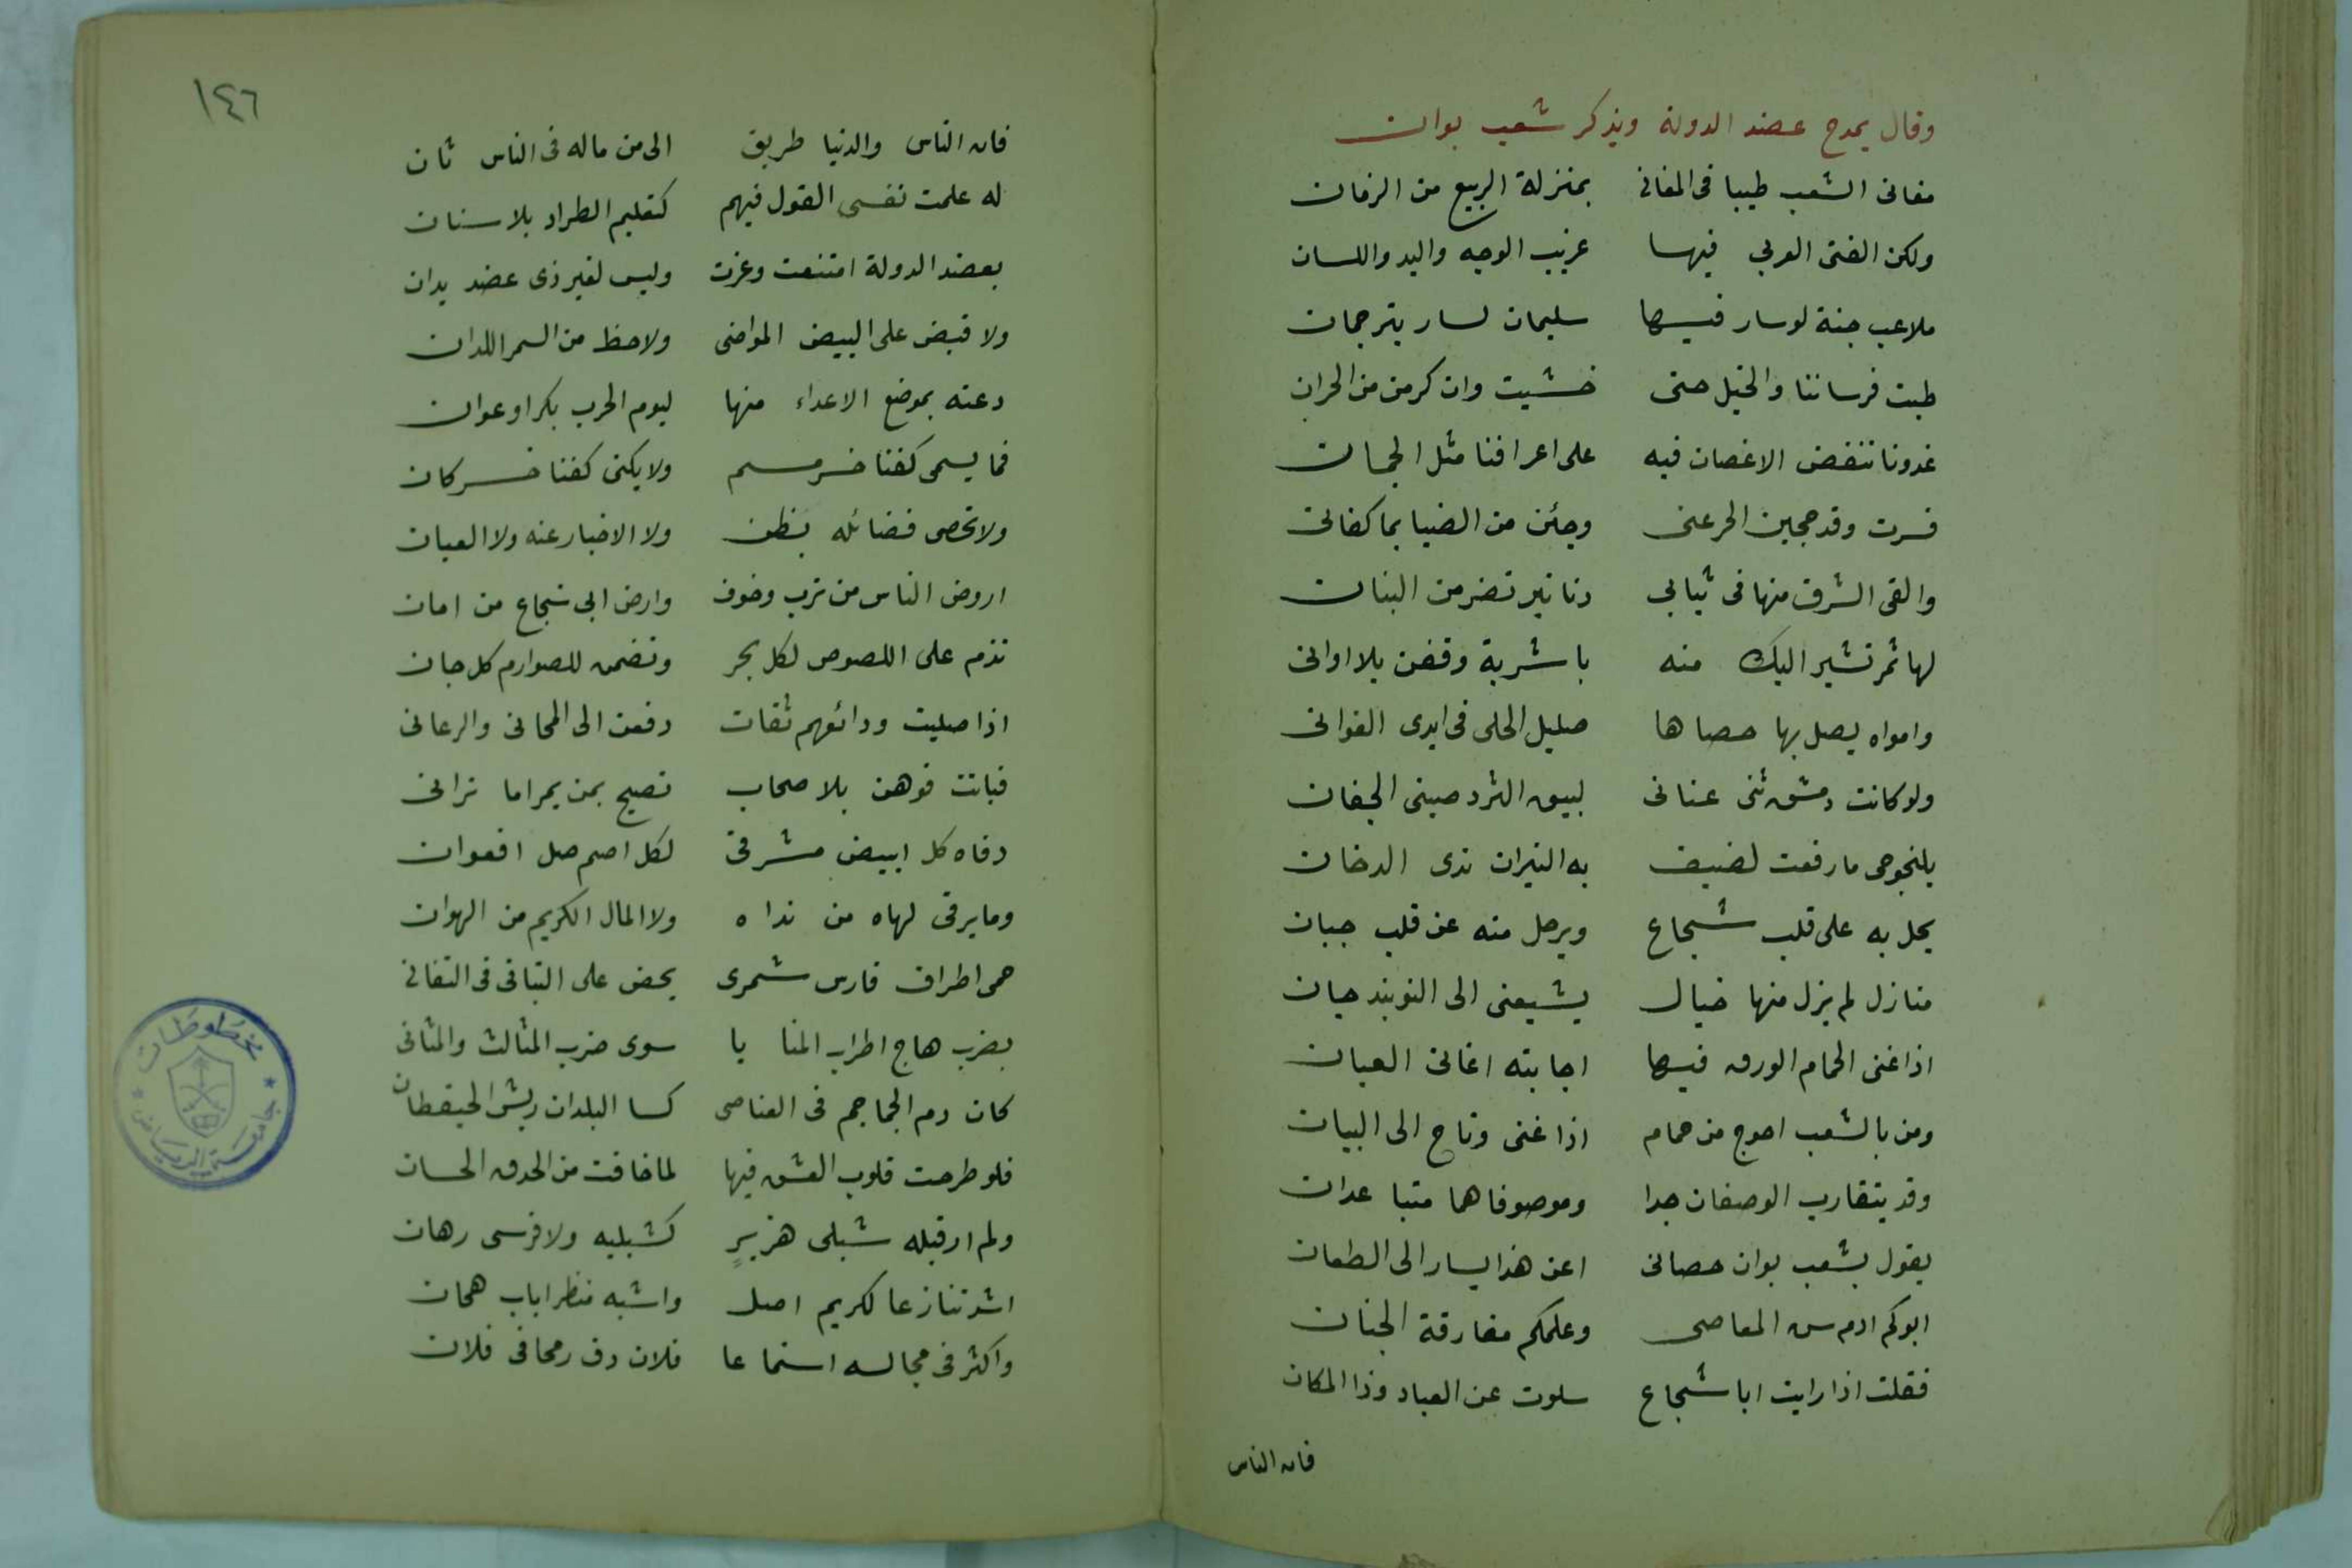 وقال يمدح عضد الدولة ويذكر شعب بوان
مغانى الشعب طيبا فى المغانى بمنزلة الربيع من الزمان
ولكن الفتى العربي فيها غريب الوجه واليد واللسان
ملاعب جنة لو سار فيها سليمان لسار بترجمان
طبت فرساننا والخيل حتى خشيت وان كرمن من الحران
غدونا تنفض الاغصان فيه على اعرافنا مثل الجمان
فسرت وقد حجبن الحر عنى وجئن من الضيا بما كفانى
والقى الشرق منها فى ثيابي دنانير تضر من البنان
لها ثمر تشير اليك منه باشربة وقفن بلا اوانى
وامواه يصل بها حصاها صليل الحلى فى ايدى الغوانى
ولو كانت دمشق ثنى عنانى لبيق الثرد صينى الجفان
يلنجوجى ما رفعت لضيف به النيران ندى الدخان
يحل به على قلب شجاع ويرحل منه عن قلب جبان
منازل لم يزل منها خيال يشيعنى الى النوبند جان
اذا غنى الحمام الورق فيها اجابته اغانى العيان
ومن بالشعب احوج من حمام اذا غنى وناح الى البيان
وقد يتقارب الوصفان جدا وموصوفاهما متباعدان
يقول بشعب بوان حصانى اعن هذا يسار الى الطعان
ابوكم ادم سن المعاصى وعلمكم مفارقة الجنان
فقلت اذا رايت ابا شجاع سلوت عن العباد وذا المكان
فان الناس
١٤٦
فان الناس والدنيا طريق الى من ماله فى الناس ثان
له علمت نفسى القول فيهم كتعليم الطراد بلا سنان
بعضد الدولة امتنعت وعزت وليس لغير ذى عضد يدان
ولا قبض على البيض المواضى ولا حظ من السمر اللدان
دعته بموضع الاعداء منها ليوم الحرب بكر او عوان
فما يسمى كفنا خسر مسم ولا يكنى كفنا خسر كان
ولا تحصى فضائله بظن ولا الاخبار عنه ولا العيان
اروض الناس من ترب وخوف وارض ابى شجاع من امان
تذم على اللصوص لكل بحر وتضمن للصوارم كل جان
اذا صليت ودائعهم ثقات دفعن الى المحانى والرعانى
فباتت فوهن بلا صحاب تصيح بمن يمر اما ترانى
دفاه كل ابيض مشرفى لكل اصم صل افعوان
وما يرقى لهاه من نداه ولا المال الكريم من الهوان
حمى اطراف فارس شمرى يحض على التباقى فى التفانى
بضرب هاج اطراب المنايا سوى ضرب المثالث والمثانى
كان دم الجماجم فى العناصى كسا البلدان ريش الحيقطان
فلو طرحت قلوب العشق فيها لما خافت من الحدق الحسان
ولم ار قبله شبلى هزبرٍ كشبليه ولا فرسى رهان
اشد تنازعا لكريم اصل واشبه منظرا باب هجان
واكثر فى مجالسه استماعا فلان دق رمحا فى فلان
مخطوطات
جامعة الرياض